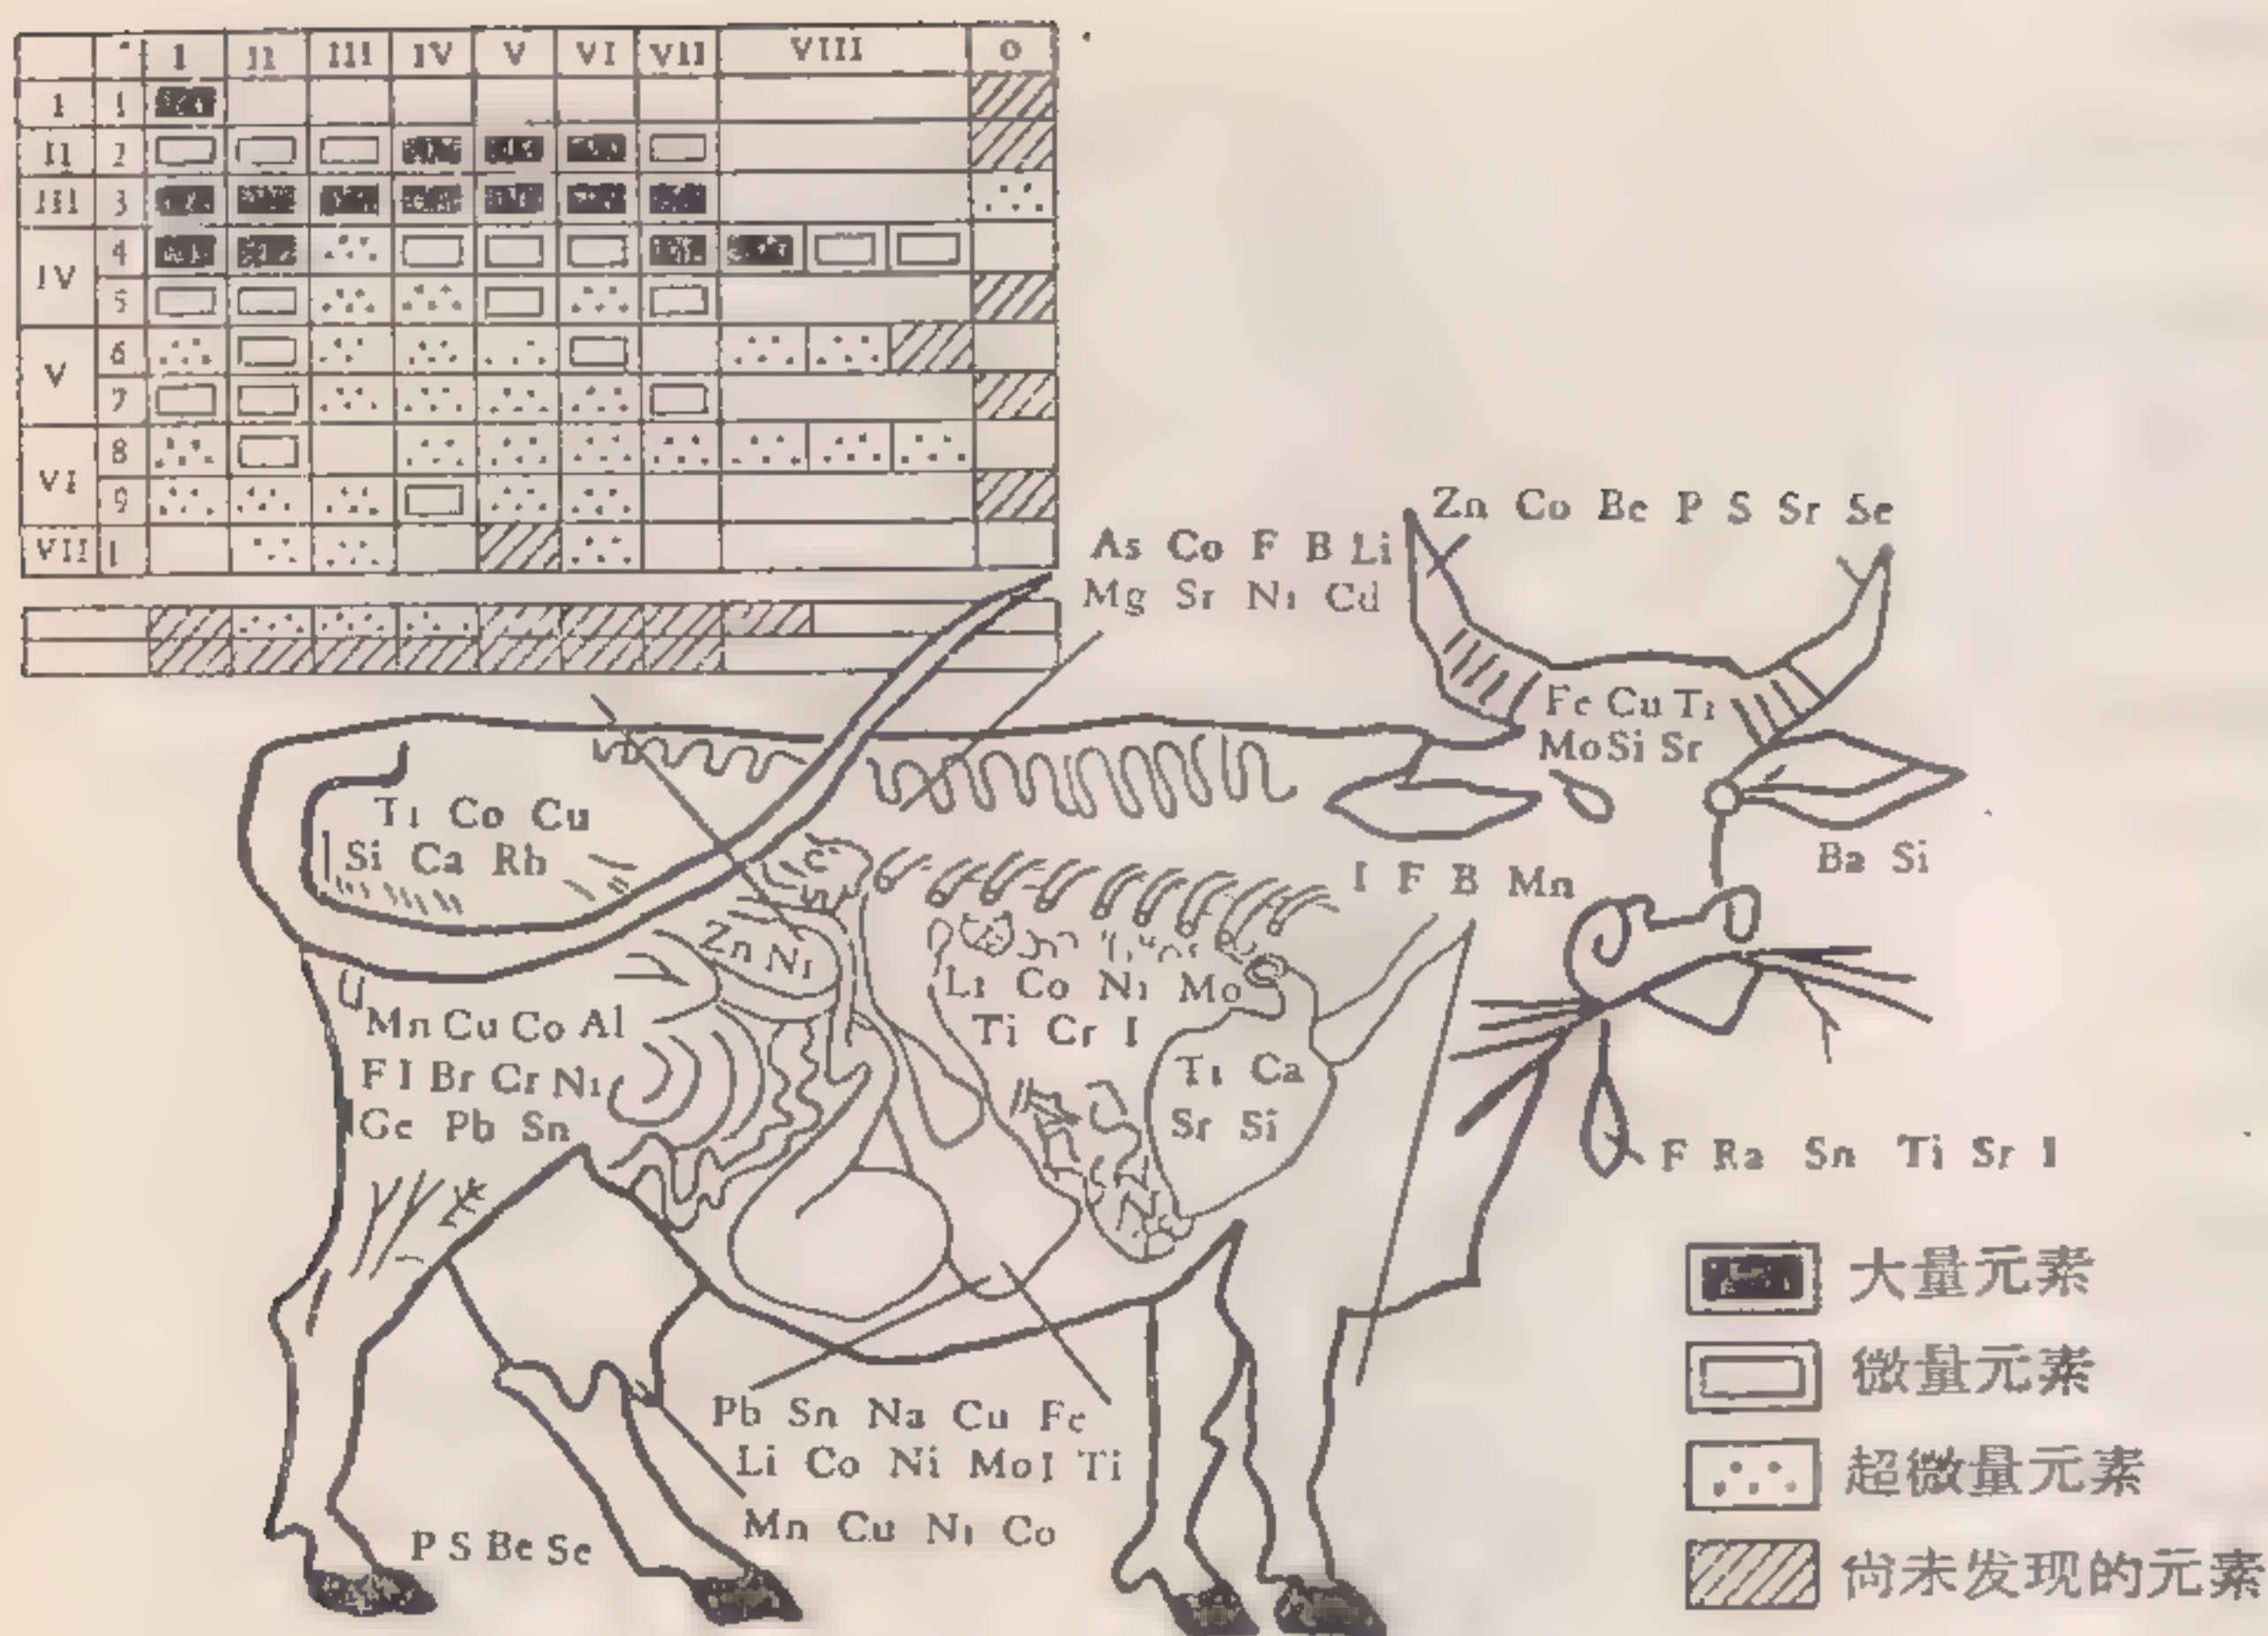 I II III IV V VI VII VIII 0
1 1
II 2
III 3
IV 4
5
V 6
7
VI 8
9
VII
Zn Co Be P S Sr Se
As Co F B Li
Mg Sr Ni Cd
Fe Cu Ti
Mo Si Sr
Ti Co Cu
Si Ca Rb
Ba Si
I F B Mn
Zn Ni
Li Co Ni Mo
Ti Cr I
Mn Cu Co Al
F I Br Cr Ni
Ge Pb Sn
Ti Ca
Sr Si
F Ra Sn Ti Sr I
Pb Sn Na Cu Fe
Li Co Ni Mo I Ti
Mn Cu Ni Co
P S Be Se
大量元素
微量元素
超微量元素
尚未发现的元素